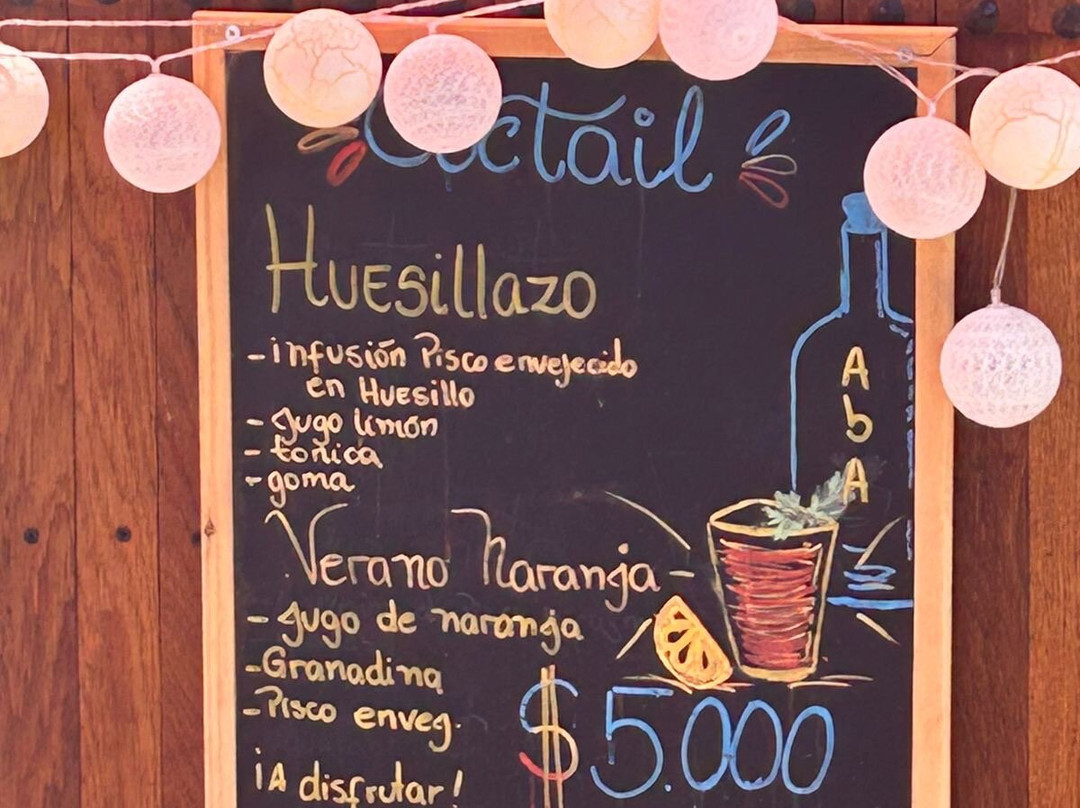 Coctail
Huesillazo
- infusión Pisco envejecido
en Huesillo
- Jugo limón
- tonica
- goma
Verano Naranja
- Jugo de naranja
- Granadina
- Pisco enveg.
$5.000
¡A disfrutar!
A
b
A